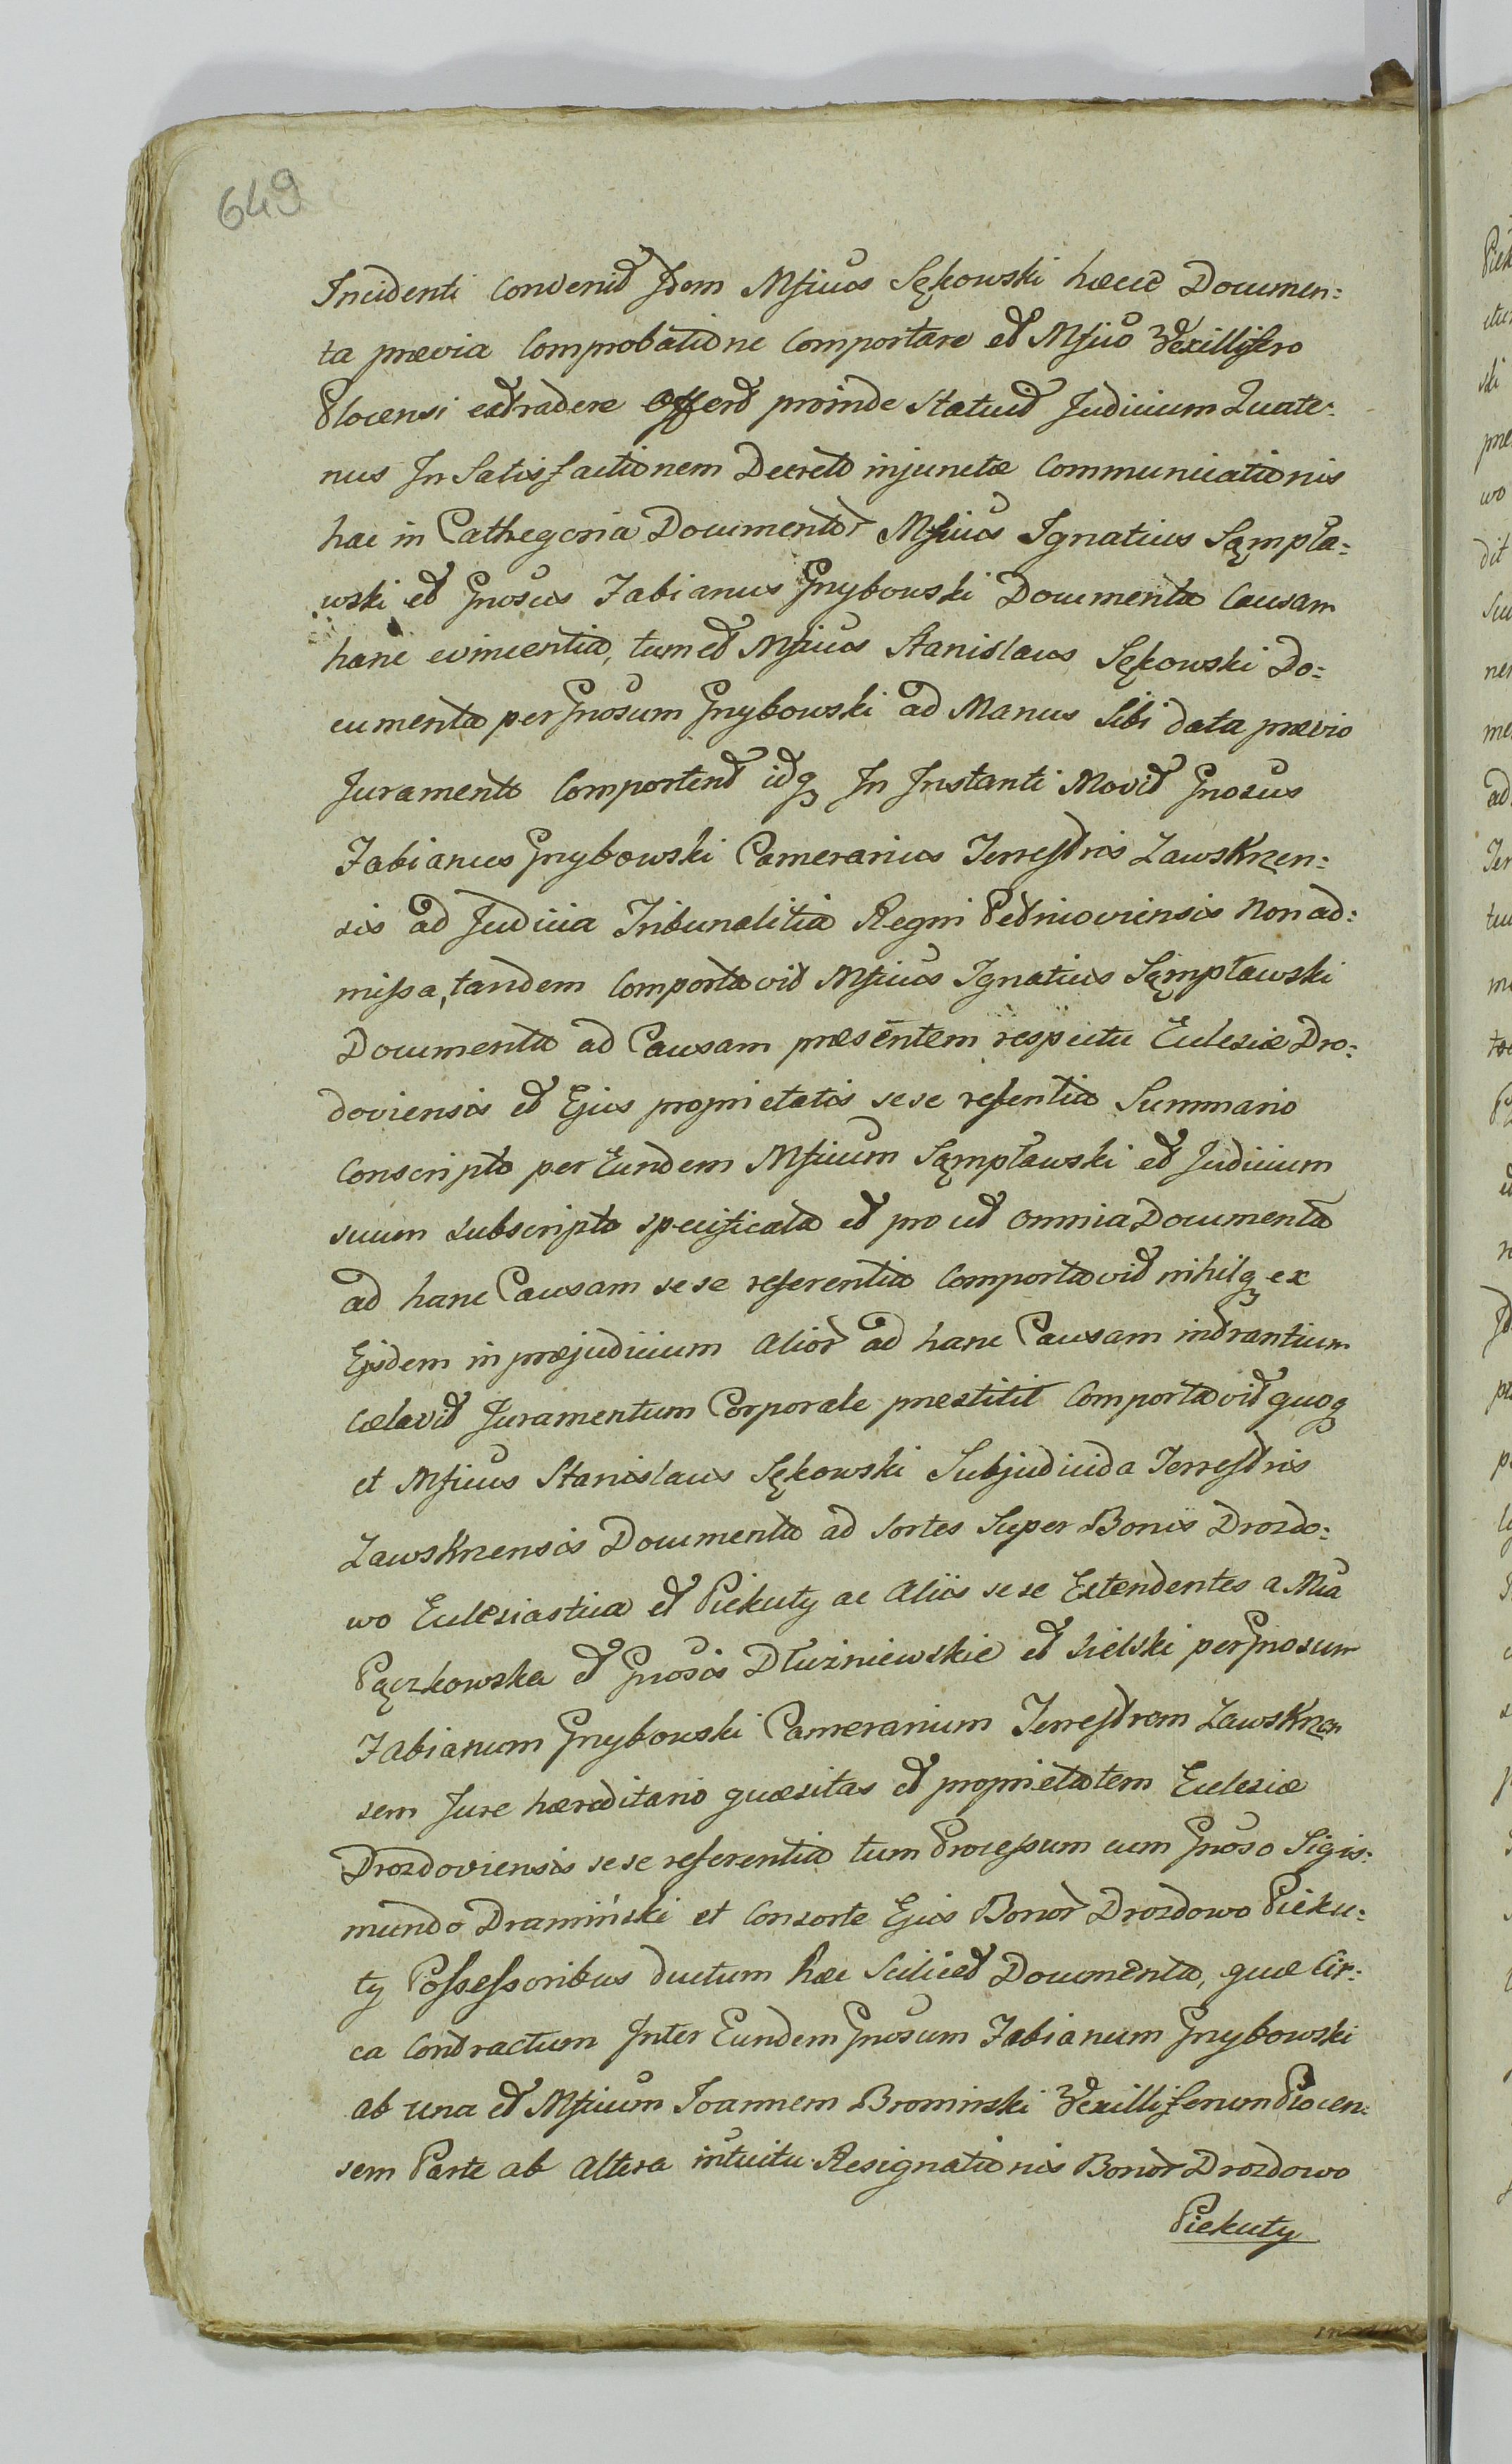 649
Incidenti Convenit Idem Mficus Sękowski haecce Documen:
ta praevia Comprobatione Comportare et Mfico Vexillifero
Plocensi extradere Offert proinde Statuit Judicium Quate:
nus In Satisfactionem Decreto injunctae Communicationis
hac in Cathegoria Documentor Mficus Ignatius Sąmpła:
wski et Gnosus Fabianus Grzybowski Documenta Causam
hanc evincentia, tum et Mficus Stanislaus Sękowski Do:
cumenta per Gnosum Grzybowski ad Manus Sibi data praevio
Juramento Comportent idq In Instanti Movit Gnosus
Fabianus Grzybowski Camerarius Terrestris Zawskrzen:
sis ad Judicia Tribunalitia Regni Petricoviensis Non ad:
missa, tandem Comportavit Mficus Ignatius Sąmpławski
Documenta ad Causam praesentem respectu Eclesiae Dro:
doviensis et Ejus proprietatis sese referentia Summario
Conscripto per Eundem Mficum Sąmpławski et Judicium
suum subscripto specificata et pro ut omnia Documenta
ad hanc Causam sese referentia Comportavit nihilq ex
Eisdem in praejudicium alior ad hanc Causam intrantium
Caelavit Juramentum Corporale praestitit Comportavit quoq
et Mficus Stanislaus Sękowski Subjudicida Terrestris
Zawskrzensis Documenta ad Sortes Super Bonis Drozdo:
wo Eclesiastica et Piekuty ac aliis sese Extendentes a Mca
Pączkowska et Gnosis Dłużniewskie et Sielski per Gnosum
Fabianum Grzybowski Camerarium Terrestrem Zawskrzen
sem Jure haereditario quaesitas et proprietatem Eclesiae
Drozdoviensis sese referentia tum Processum cum Gnoso Sigis:
mundo Dramiński et Consorte Ejus Bonor Drozdowo Pieku:
ty Possessoribus ductum haec Scilicet Documenta, quae Cir:
ca Contractum Inter Eundem Gnosum Fabianum Grzybowski
ab una et Mficum Joannem Brominski Vexilliferum Plocen:
sem Parte ab altera intuitu Resignationis Bonor Drozdowo
Piekuty